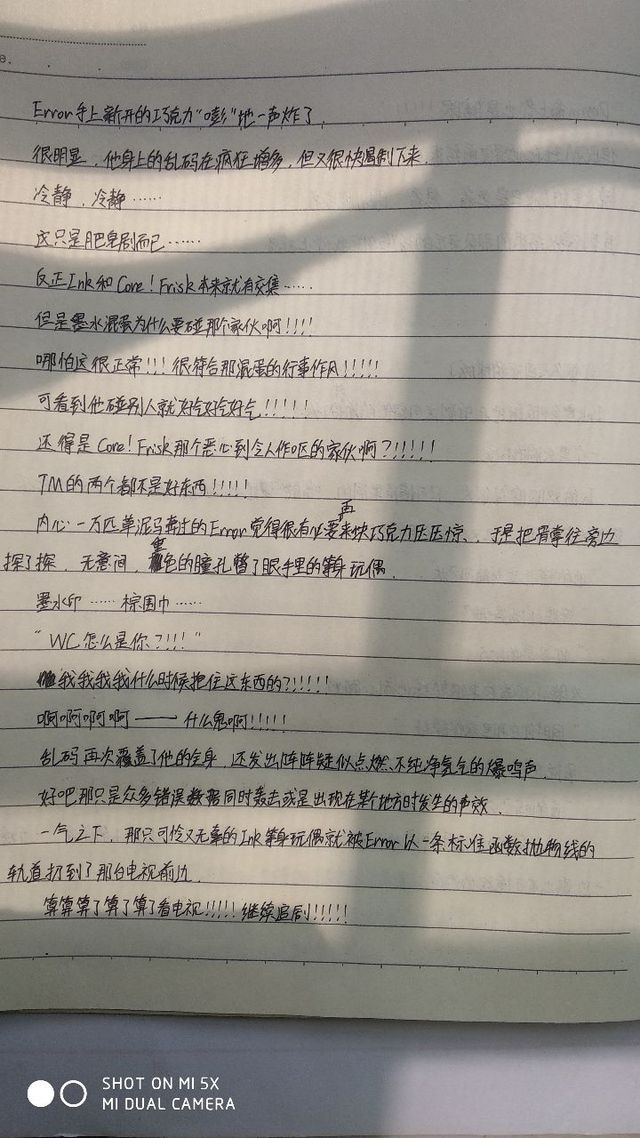 e.
Error手上新开的巧克力"嘭"地一声炸了
很明显，他身上的乱码在疯狂增多，但又很快遏制下来.
冷静，冷静……
这只是肥皂剧而已……
反正Ink和Core！Frisk本来就有交集……
但是墨水混蛋为什么要碰那个家伙啊!!!!
哪怕这很正常!!! 很符合那混蛋的行事作风!!!!!
可看到他碰别人就好气好气好气!!!!!
还得是Core！Frisk那个恶心到令人作呕的家伙啊?!!!!!
TM的两个都不是好东西!!!!!
内心一万匹草泥马奔过的Error觉得很有必要再来块巧克力压压惊、于是把骨掌往旁边
探了探，无意间，金色的瞳孔瞥了眼手里的等身玩偶.
墨水印……棕围巾……
"WC怎么是你?!!!"
我我我我什么时候把住这东西的?!!!!!
啊啊啊啊——什么鬼啊!!!!!
乱码再次覆盖了他的全身，还发出阵阵疑似点燃不纯净氢气的爆鸣声.
好吧那只是众多错误数据同时轰击或是出现在某个地方时发生的声效.
一气之下，那只可怜又无辜的Ink等身玩偶就被Error以一条标准函数抛物线的
轨道扔到了那台电视前边.
算算算了算了算了看电视!!!!! 继续追剧!!!!!
SHOT ON MI 5X
MI DUAL CAMERA